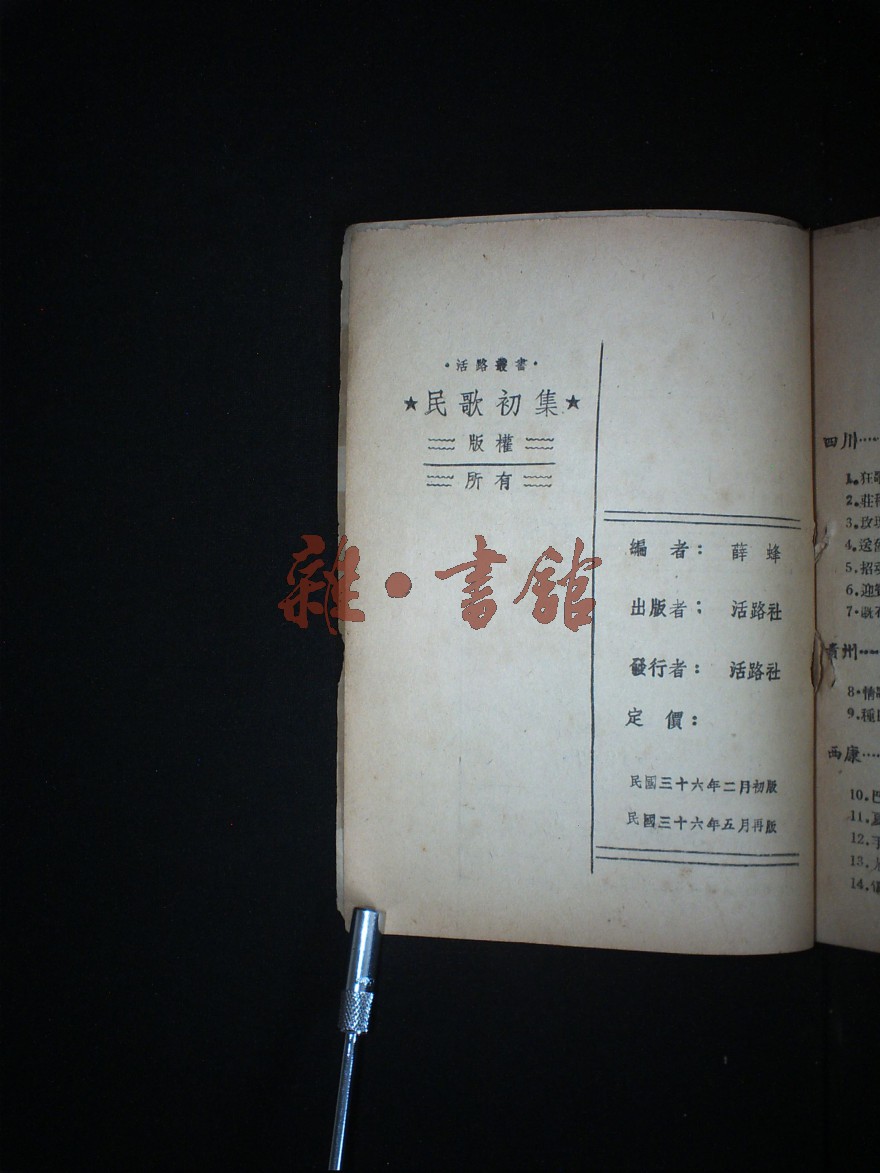 ·活路叢書·
★民歌初集★
版權
所有
編者：薛蜂
出版者：活路社
發行者：活路社
定價：
民國三十六年二月初版
民國三十六年五月再版
雜·書館
四川……
1.狂歌
2.莊稼
3.玫瑰
4.送
5.招
6.迎
7.
貴州……
8.情歌
9.種
西康……
10.巴
11.
12.
13.
14.